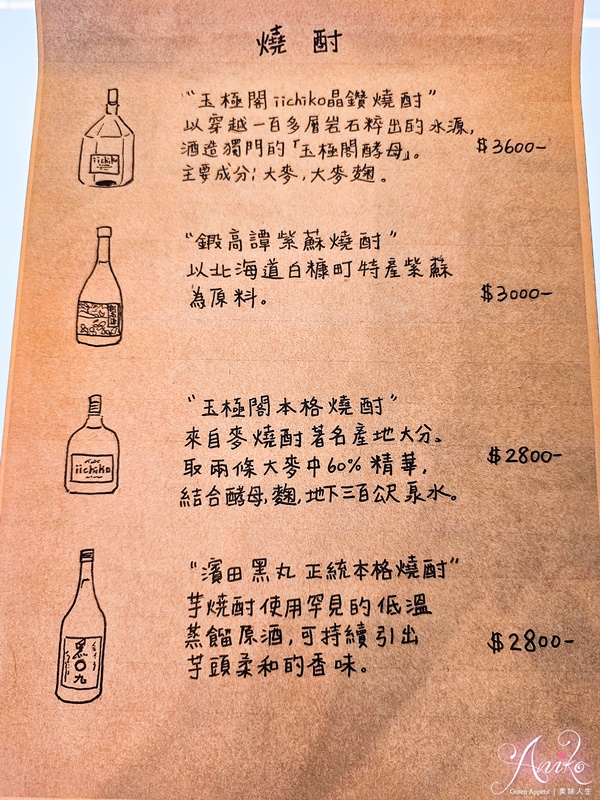 燒酎
“玉極閣iichiko晶鑽燒酎”
以穿越一百多層岩石粹出的水源,
酒造獨門的「玉極閣酵母」。
主要成分:大麥,大麥麴。
$3600-
iichiko
“鍛高譚紫蘇燒酎”
以北海道白糠町特產紫蘇
為原料。
$3000-
“玉極閣本格燒酎”
來自麥燒酎著名產地大分。
取兩條大麥中60%精華,
結合酵母,麴,地下三百公尺泉水。
$2800-
iichiko
“濱田黑丸 正統本格燒酎”
芋燒酎使用罕見的低溫
蒸餾原酒,可持續引出
芋頭柔和的香味。
$2800-
Aniko
Guten Appetit | 美味人生